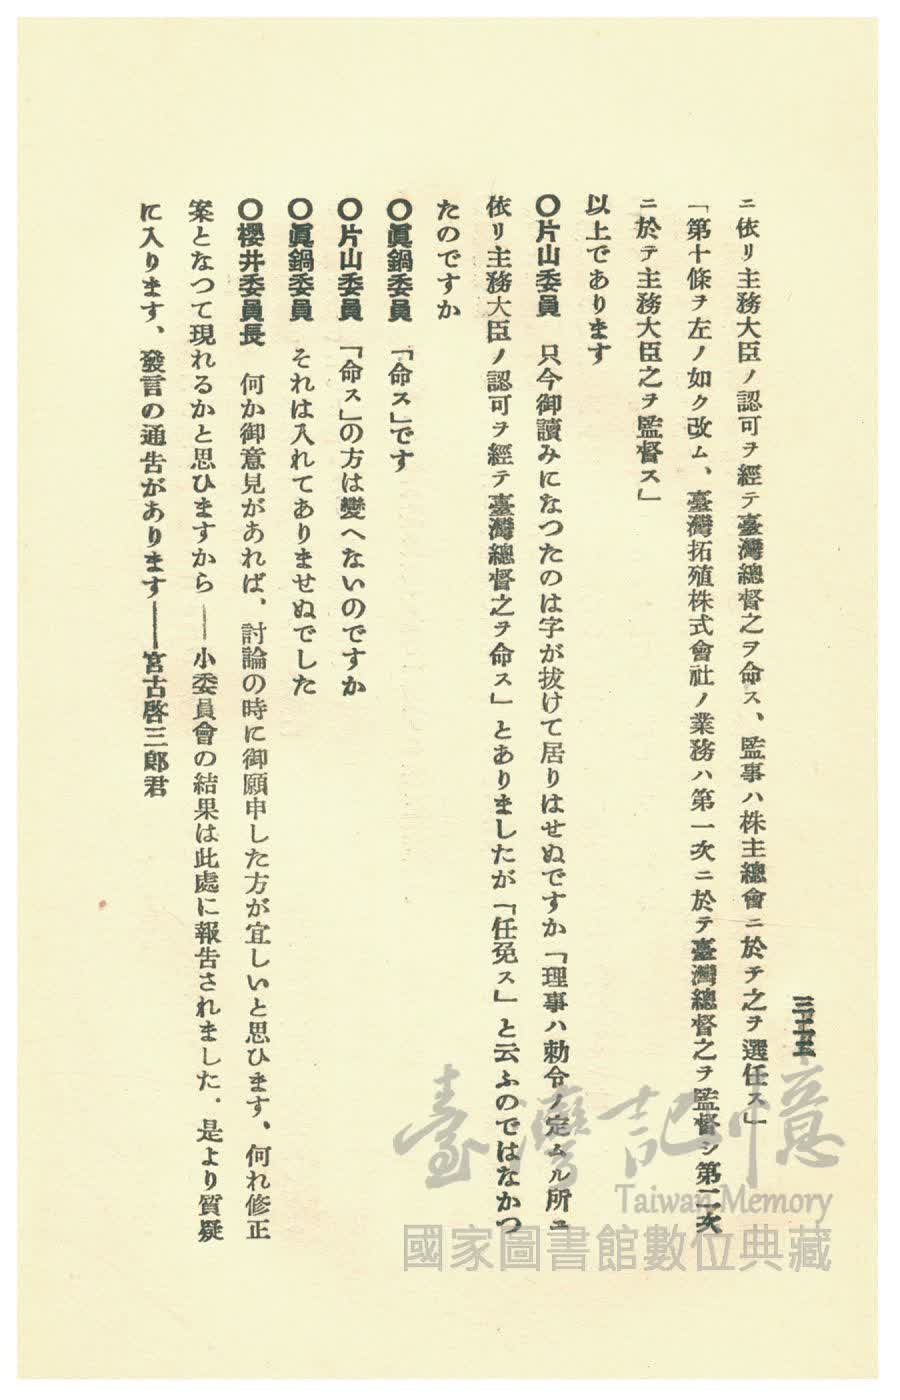 ニ依リ主務大臣ノ認可ヲ經テ臺灣總督之ヲ命ス、監事ハ株主總會ニ於テ之ヲ選任ス」
「第十條ヲ左ノ如ク改ム、臺灣拓殖株式會社ノ業務ハ第一次ニ於テ臺灣總督之ヲ監督シ第二次
ニ於テ主務大臣之ヲ監督ス」
以上であります
〇片山委員　只今御讀みになつたのは字が拔けて居りはせぬですか「理事ハ勅令ノ定ムル所ニ
依リ主務大臣ノ認可ヲ經テ臺灣總督之ヲ命ス」とありましたが「任免ス」と云ふのではなかつ
たのですか
〇眞鍋委員　「命ス」です
〇片山委員　「命ス」の方は變へないのですか
〇眞鍋委員　それは入れてありませぬでした
〇櫻井委員長　何か御意見があれば、討論の時に御願申した方が宜しいと思ひます、何れ修正
案となつて現れるかと思ひますから――小委員會の結果は此處に報告されました、是より質疑
に入ります、發言の通告があります――宮古啓三郎君
臺灣記憶
Taiwan Memory
國家圖書館數位典藏